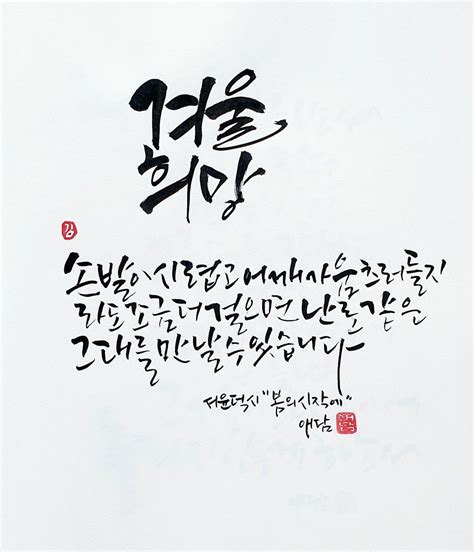 겨울
희망
김
손발이 시렵고 어깨가 움츠러들지
라도 조금 더 걸으면 난로같은
그대를 만날 수 있습니다
서윤덕시 "봄의 시작에"
애담